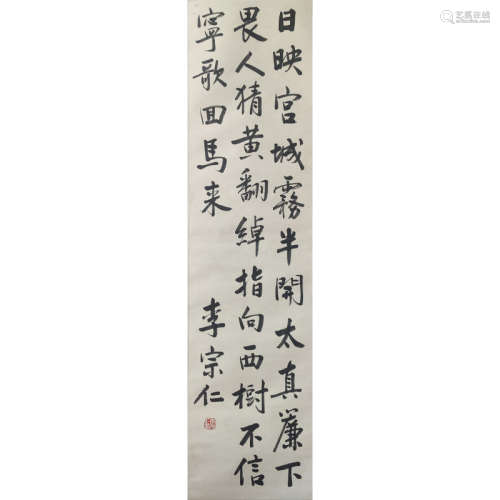 日映宫城霧半開太真簾下
畏人猜黄翻綽指向西樹不信
寧歌回馬来
李宗仁